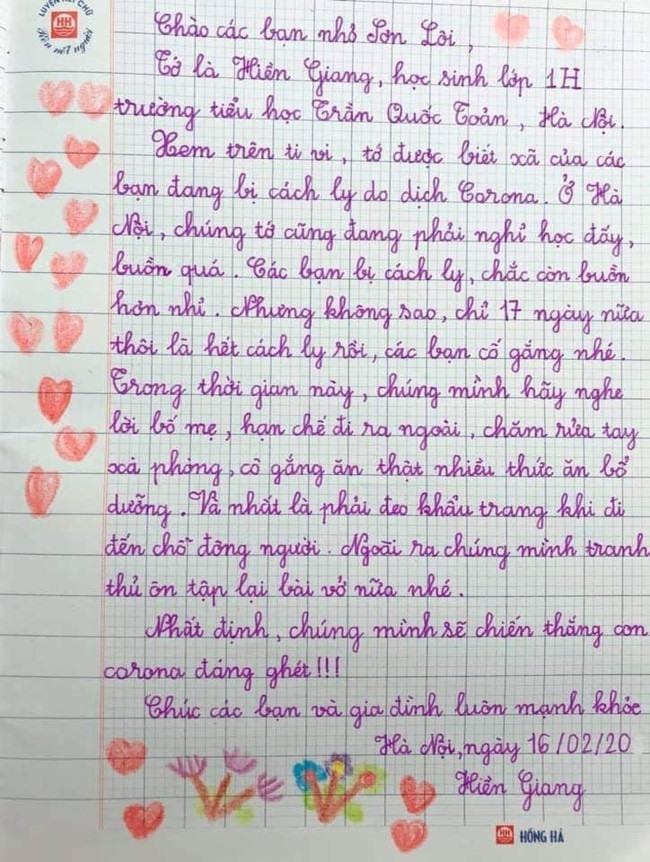 LUYỆN NÉT CHỮ
HH
Rèn nết người
Chào các bạn nhỏ Sơn Lôi,
Tớ là Hiền Giang, học sinh lớp 1H
trường tiểu học Trần Quốc Toản, Hà Nội.
Xem trên ti vi, tớ được biết xã của các
bạn đang bị cách ly do dịch Corona. Ở Hà
Nội, chúng tớ cũng đang phải nghỉ học đấy,
buồn quá. Các bạn bị cách ly, chắc còn buồn
hơn nhỉ. Nhưng không sao, chỉ 17 ngày nữa
thôi là hết cách ly rồi, các bạn cố gắng nhé.
Trong thời gian này, chúng mình hãy nghe
lời bố mẹ, hạn chế đi ra ngoài, chăm rửa tay
xà phòng, cố gắng ăn thật nhiều thức ăn bổ
dưỡng. Và nhất là phải đeo khẩu trang khi đi
đến chỗ đông người. Ngoài ra chúng mình tranh
thủ ôn tập lại bài vở nữa nhé.
Nhất định, chúng mình sẽ chiến thắng con
corona đáng ghét!!!
Chúc các bạn và gia đình luôn mạnh khỏe
Hà Nội, ngày 16/02/20
Hiền Giang
HH HỒNG HÀ